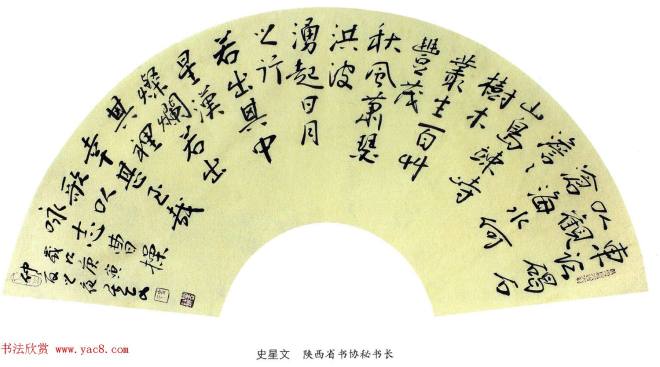 東臨碣石
以觀
滄海水何
澹々
山島竦峙
樹木
叢生百艸
豐茂
秋風蕭瑟
洪波
湧起日月
之行
若出其中
星漢
燦爛若出
其裡
幸甚至哉
歌以
咏志 曹操
歲次庚寅
仲夏之夜 星文
史星文 陕西省书协秘书长
书法欣赏 www.yac8.com